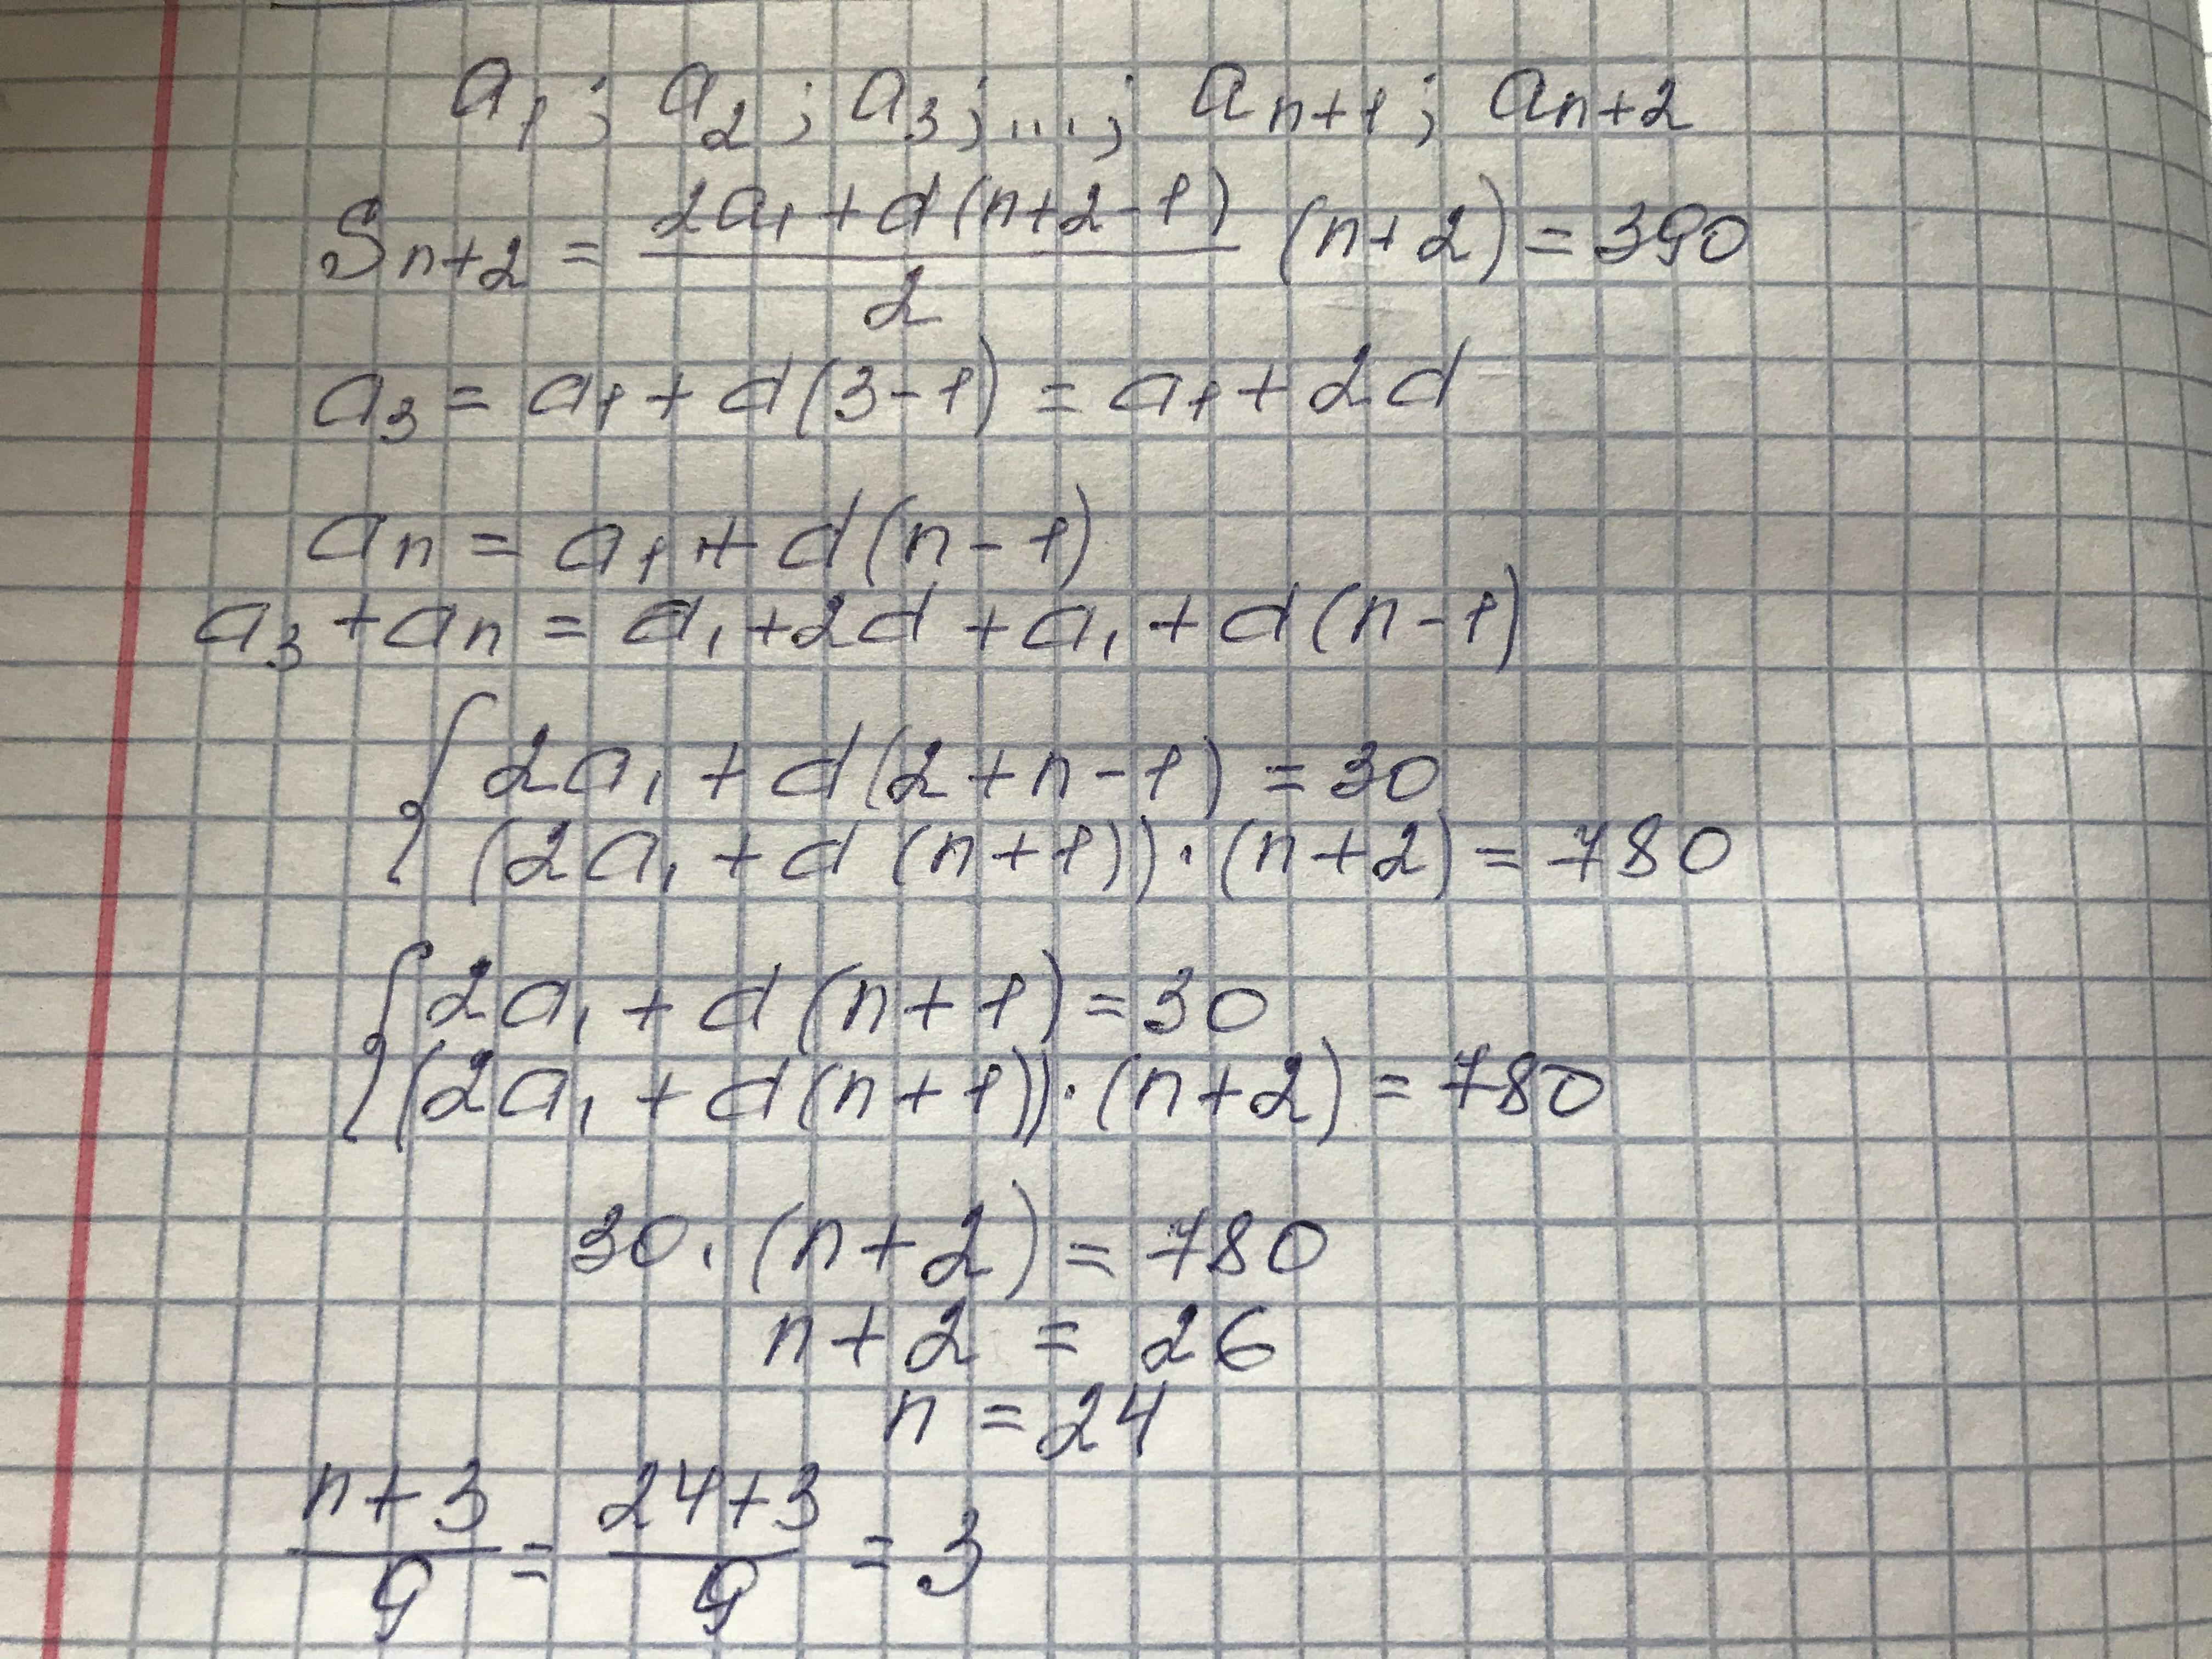 a₁; a₂; a₃; ...; aₙ₊₁; aₙ₊₂
Sₙ₊₂ = (2a₁ + d(n+2-1))/2 (n+2) = 390
a₃ = a₁ + d(3-1) = a₁ + 2d
aₙ = a₁ + d(n-1)
a₃ + aₙ = a₁ + 2d + a₁ + d(n-1)
{ 2a₁ + d(2+n-1) = 30
(2a₁ + d(n+1))·(n+2) = 780
{ 2a₁ + d(n+1) = 30
(2a₁ + d(n+1))·(n+2) = 780
30·(n+2) = 780
n+2 = 26
n = 24
(n+3)/9 = (24+3)/9 = 3